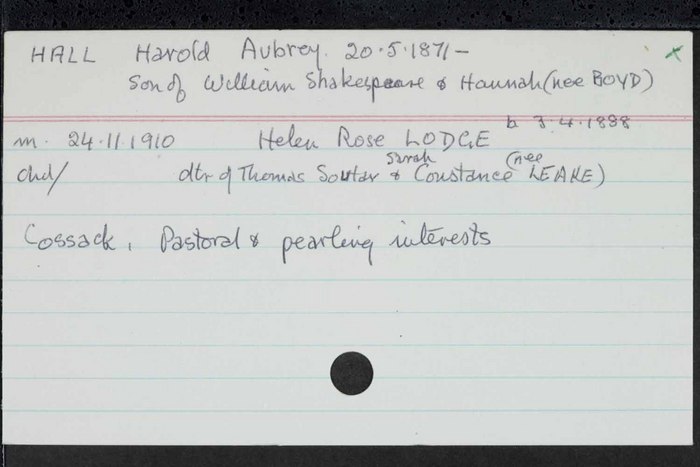 HALL Harold Aubrey. 20.5.1871- x
Son of William Shakespeare & Hannah (nee BOYD)
b 3.4.1888
m. 24.11.1910 Helen Rose LODGE
chd/ dtr of Thomas Soutar & Sarah Constance (nee LEAKE)
Cossack, Pastoral & pearling interests